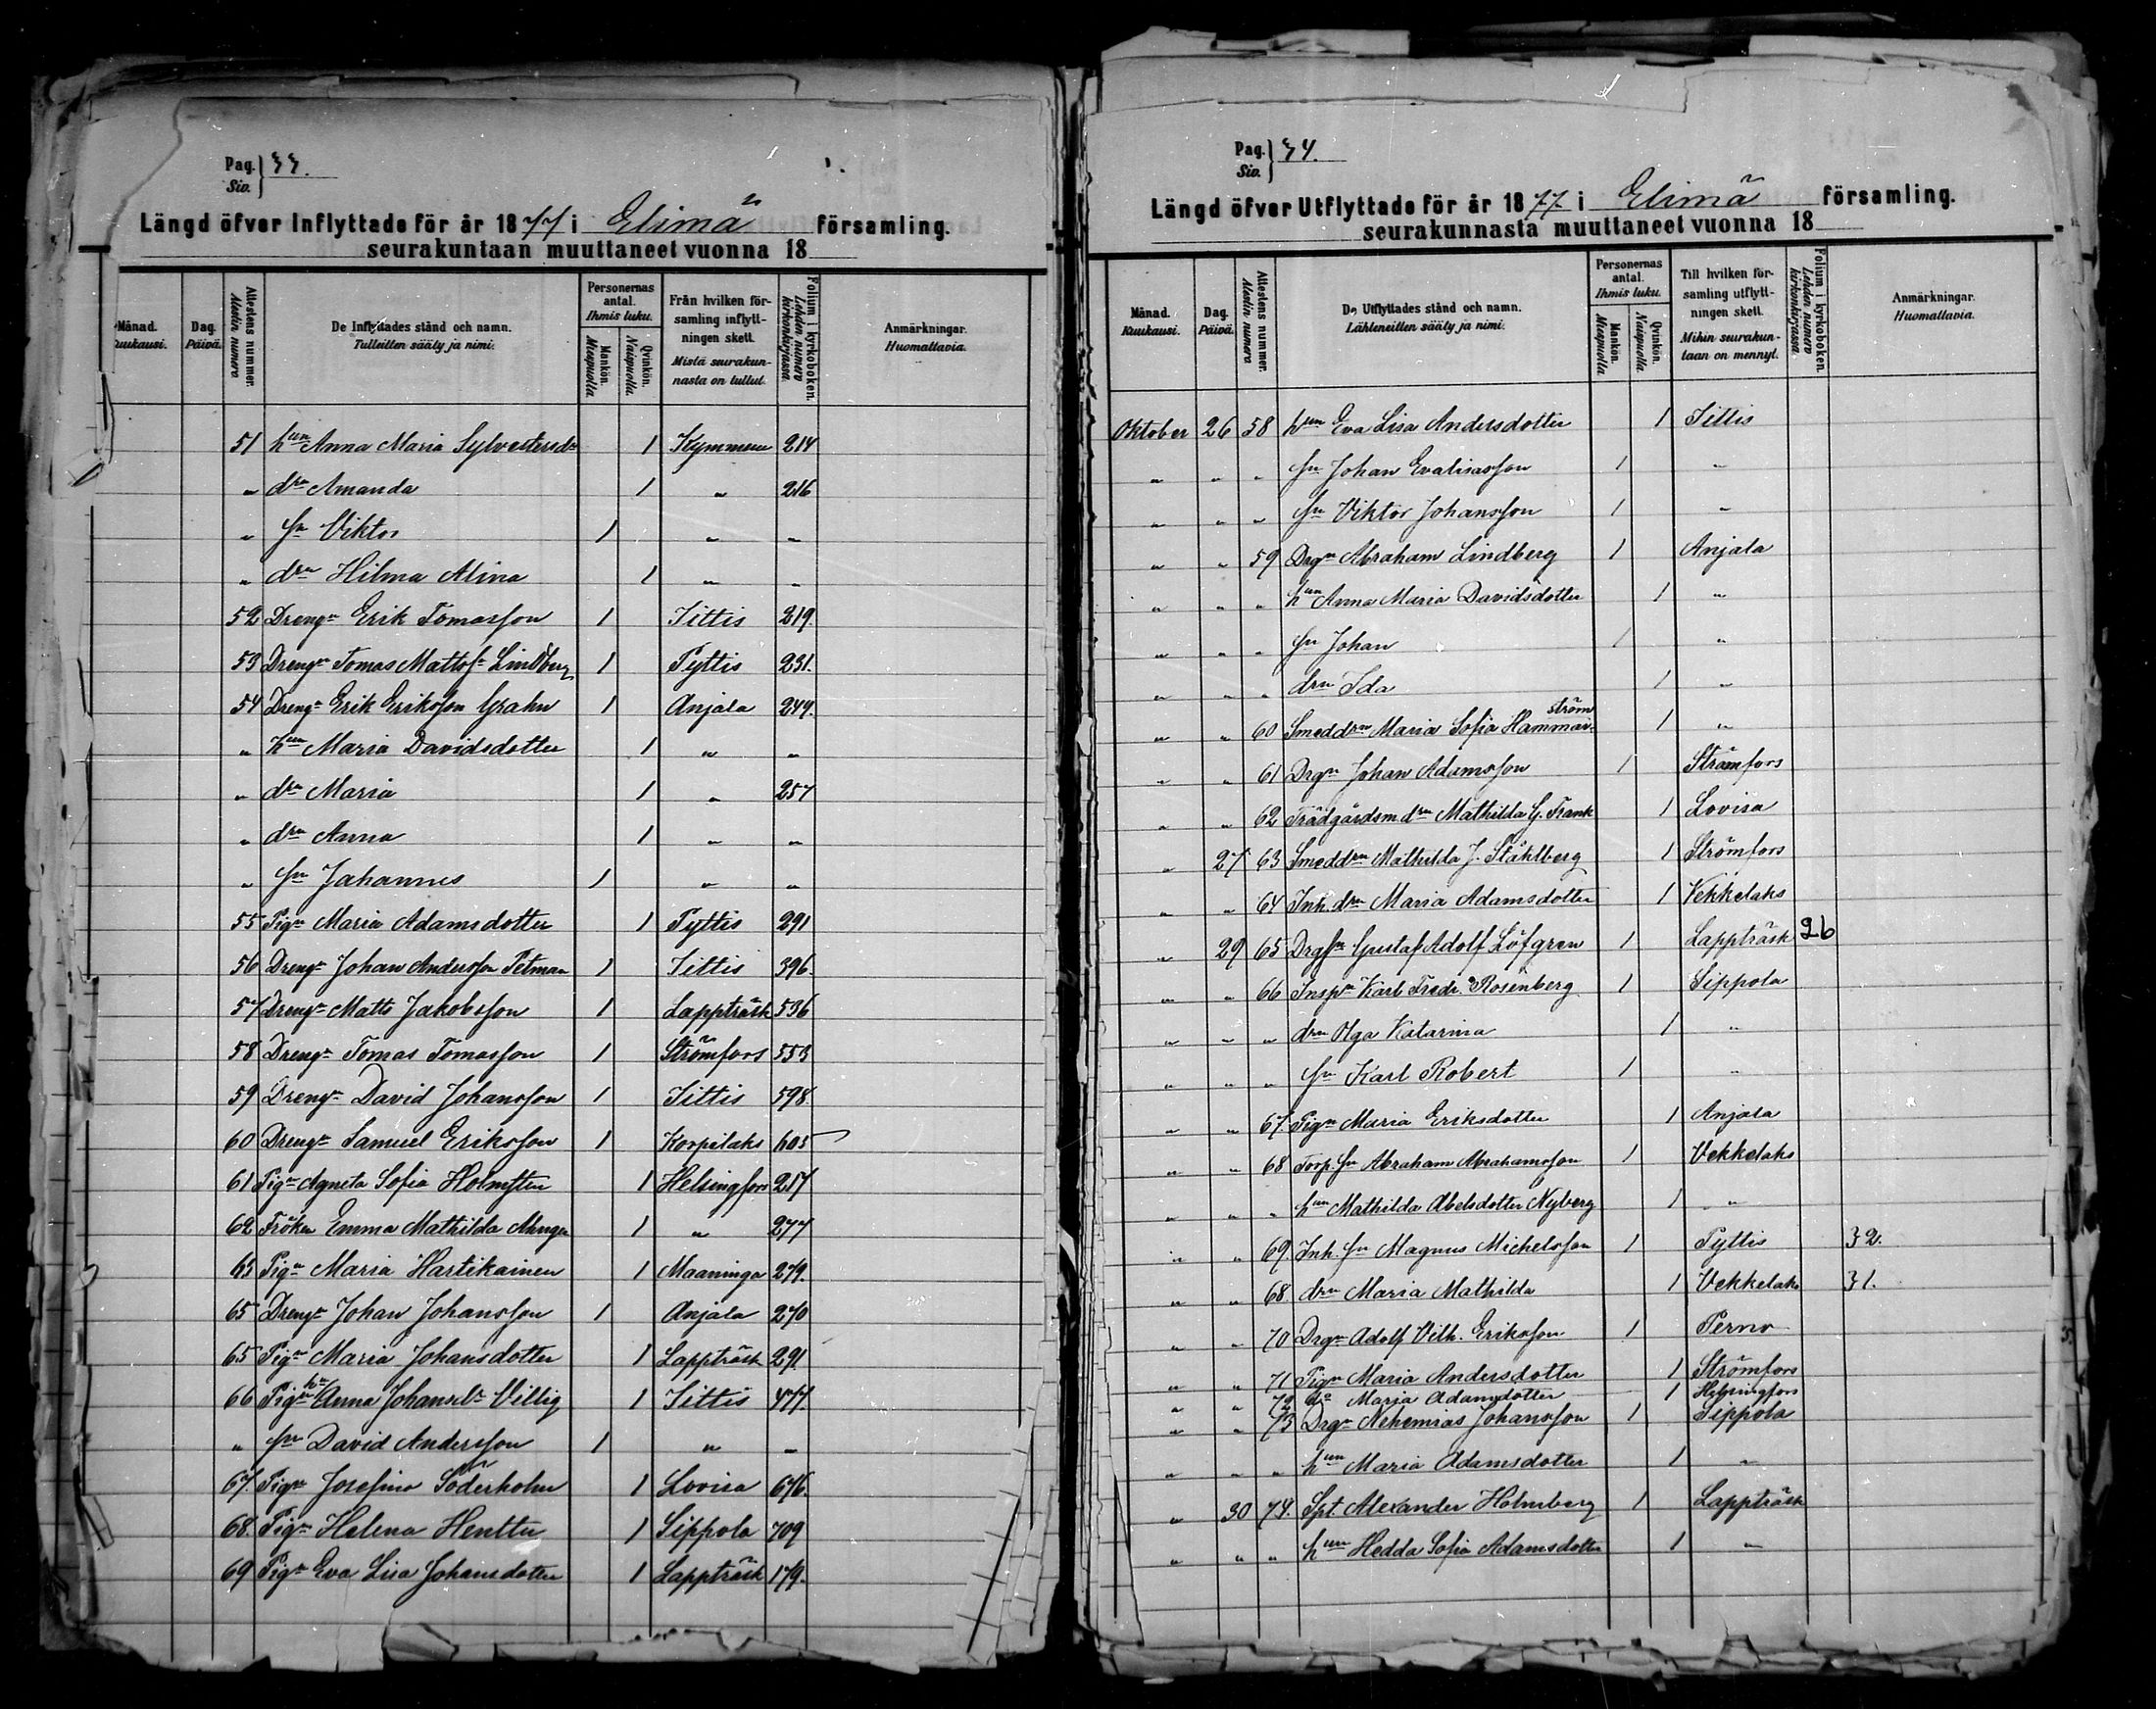 Pag.
Siv. } 33.
Längd öfver Inflyttade för år 1877 i Elimä församling.
seurakuntaan muuttaneet vuonna 18
Månad. Kuukausi.
Dag. Päivä.
Attestens nummer. Atestin numero
De Inflyttades stånd och namn. Tulleitten sääty ja nimi.
Personernas antal. Ihmis luku.
Mankön. Miespuolia
Qvinkön. Naispuolia.
Från hvilken församling inflyttningen skett. Mistä seurakunnasta on tullut.
Folium i kyrkoboken. Lehden numero kirkonkirjassa.
Anmärkningar. Huomattavia.
51 hun Anna Maria Sylvestersdr 1 Kymmene 214
" drn Amanda 1 " 216
" sn Viktor 1 " "
" drn Hilma Alina 1 " "
52 Drengn Erik Tomasson 1 Iittis 219.
53 Drengn Tomas Mattss Lindberg 1 Pyttis 231.
54 Drengn Erik Eriksson Grahn 1 Anjala 249.
" hun Maria Davidsdotter 1 " "
" drn Maria 1 " 257
" drn Anna 1 " "
" sn Johannes 1 " "
55 Pign Maria Adamsdotter 1 Pyttis 291
56 Drengn Johan Andersson Petman 1 Iittis 396.
57 Drengn Matts Jakobsson 1 Lappträsk 536
58 Drengn Tomas Tomasson 1 Strömfors 553
59 Drengn David Johansson 1 Iittis 598.
60 Drengn Samuel Eriksson 1 Korpilaks 605
61 Pign Agneta Sofia Holmsten 1 Helsingfors 257
62 Fröken Emma Mathilda 1 " 277
63 Pign Maria Hartikainen 1 Maaninga 279.
65 Drengn Johan Johansson 1 Anjala 270
65 Pign Maria Johansdotter 1 Lappträsk 291.
66 Pign Anna Johansdr Villig 1 Iittis 477.
" sn David Andersson 1 " "
67. Pign Josefina Söderholm 1 Lovisa 676.
68. Pign Helena Henttu 1 Sippola 709
69 Pign Eva Lisa Johansdotter 1 Lappträsk 179.
Pag.
Siv. } 34.
Längd öfver Utflyttade för år 1877 i Elimä församling.
seurakunnasta muuttaneet vuonna 18
Månad. Kuukausi.
Dag. Päivä.
Attestens nummer. Atestin numero
De Utflyttades stånd och namn. Lähteneitten sääty ja nimi.
Personernas antal. Ihmis luku.
Mankön. Miespuolia.
Qvinkön. Naispuolia
Till hvilken församling utflyttningen skett. Mihin seurakuntaan on mennyt.
Folium i kyrkoboken. Lehden numero kirkonkirjassa.
Anmärkningar. Huomattavia.
Oktober 26 58 hun Eva Lisa Andersdotter 1 Iittis
" " " sn Johan Evalisasson 1 "
" " " sn Viktor Johansson 1 "
" " 59 Drgn Abraham Lindberg 1 Anjala
" " " hun Anna Maria Davidsdotter 1 "
" " " sn Johan 1 "
" " " drn Ida 1 "
" " 60 Smeddrn Maria Sofia Hammarström 1 "
" " 61 Drgn Johan Adamsson 1 Strömfors
" " 62 Trädgårdsm drn Mathilda G. Frank 1 Lovisa
" 27 63 Smeddrn Mathilda J. Ståhlberg 1 Strömfors
" " 64 Inh. drn Maria Adamsdotter 1 Vekkelaks
" 29 65 Drgsn Gustaf Adolf Löfgren 1 Lappträsk 26
" " 66 Inspn Karl Fredr. Rosenberg 1 Sippola
" " " drn Olga Katarina 1 "
" " " sn Karl Robert 1 "
" " 67. Pign Maria Eriksdotter 1 Anjala
" " 68 Torp. sn Abraham Abrahamsson 1 Vekkelaks
" " " hun Mathilda Abelsdotter Nyberg 1 "
" " 69. Inh. sn Magnus Michelsson 1 Pyttis 32.
" " 68. drn Maria Mathilda 1 Vekkelaks 31.
" " 70 Drgn Adolf Vilh. Eriksson 1 Perno
" " 71 Pign Maria Andersdotter 1 Strömfors
" " 72 do Maria Adamsdotter 1 Helsingfors
" " 73 Drgn Nehemias Johansson 1 Sippola
" " " hun Maria Adamsdotter 1 "
" 30 74. Spt. Alexander Holmberg 1 Lappträsk
" " " hun Hedda Sofia Adamsdotter 1 "